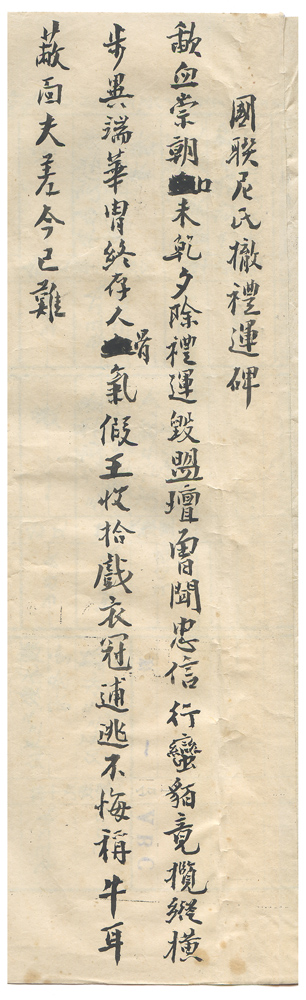 國聯尼氏撤禮運碑
歃血崇朝口未乾夕除禮運毀盟壇曾聞忠信行蠻貊竟攬縱橫
步異端華冑終存人骨氣假王收拾戲衣冠逋逃不悔稱牛耳
蔽面夫差今已難